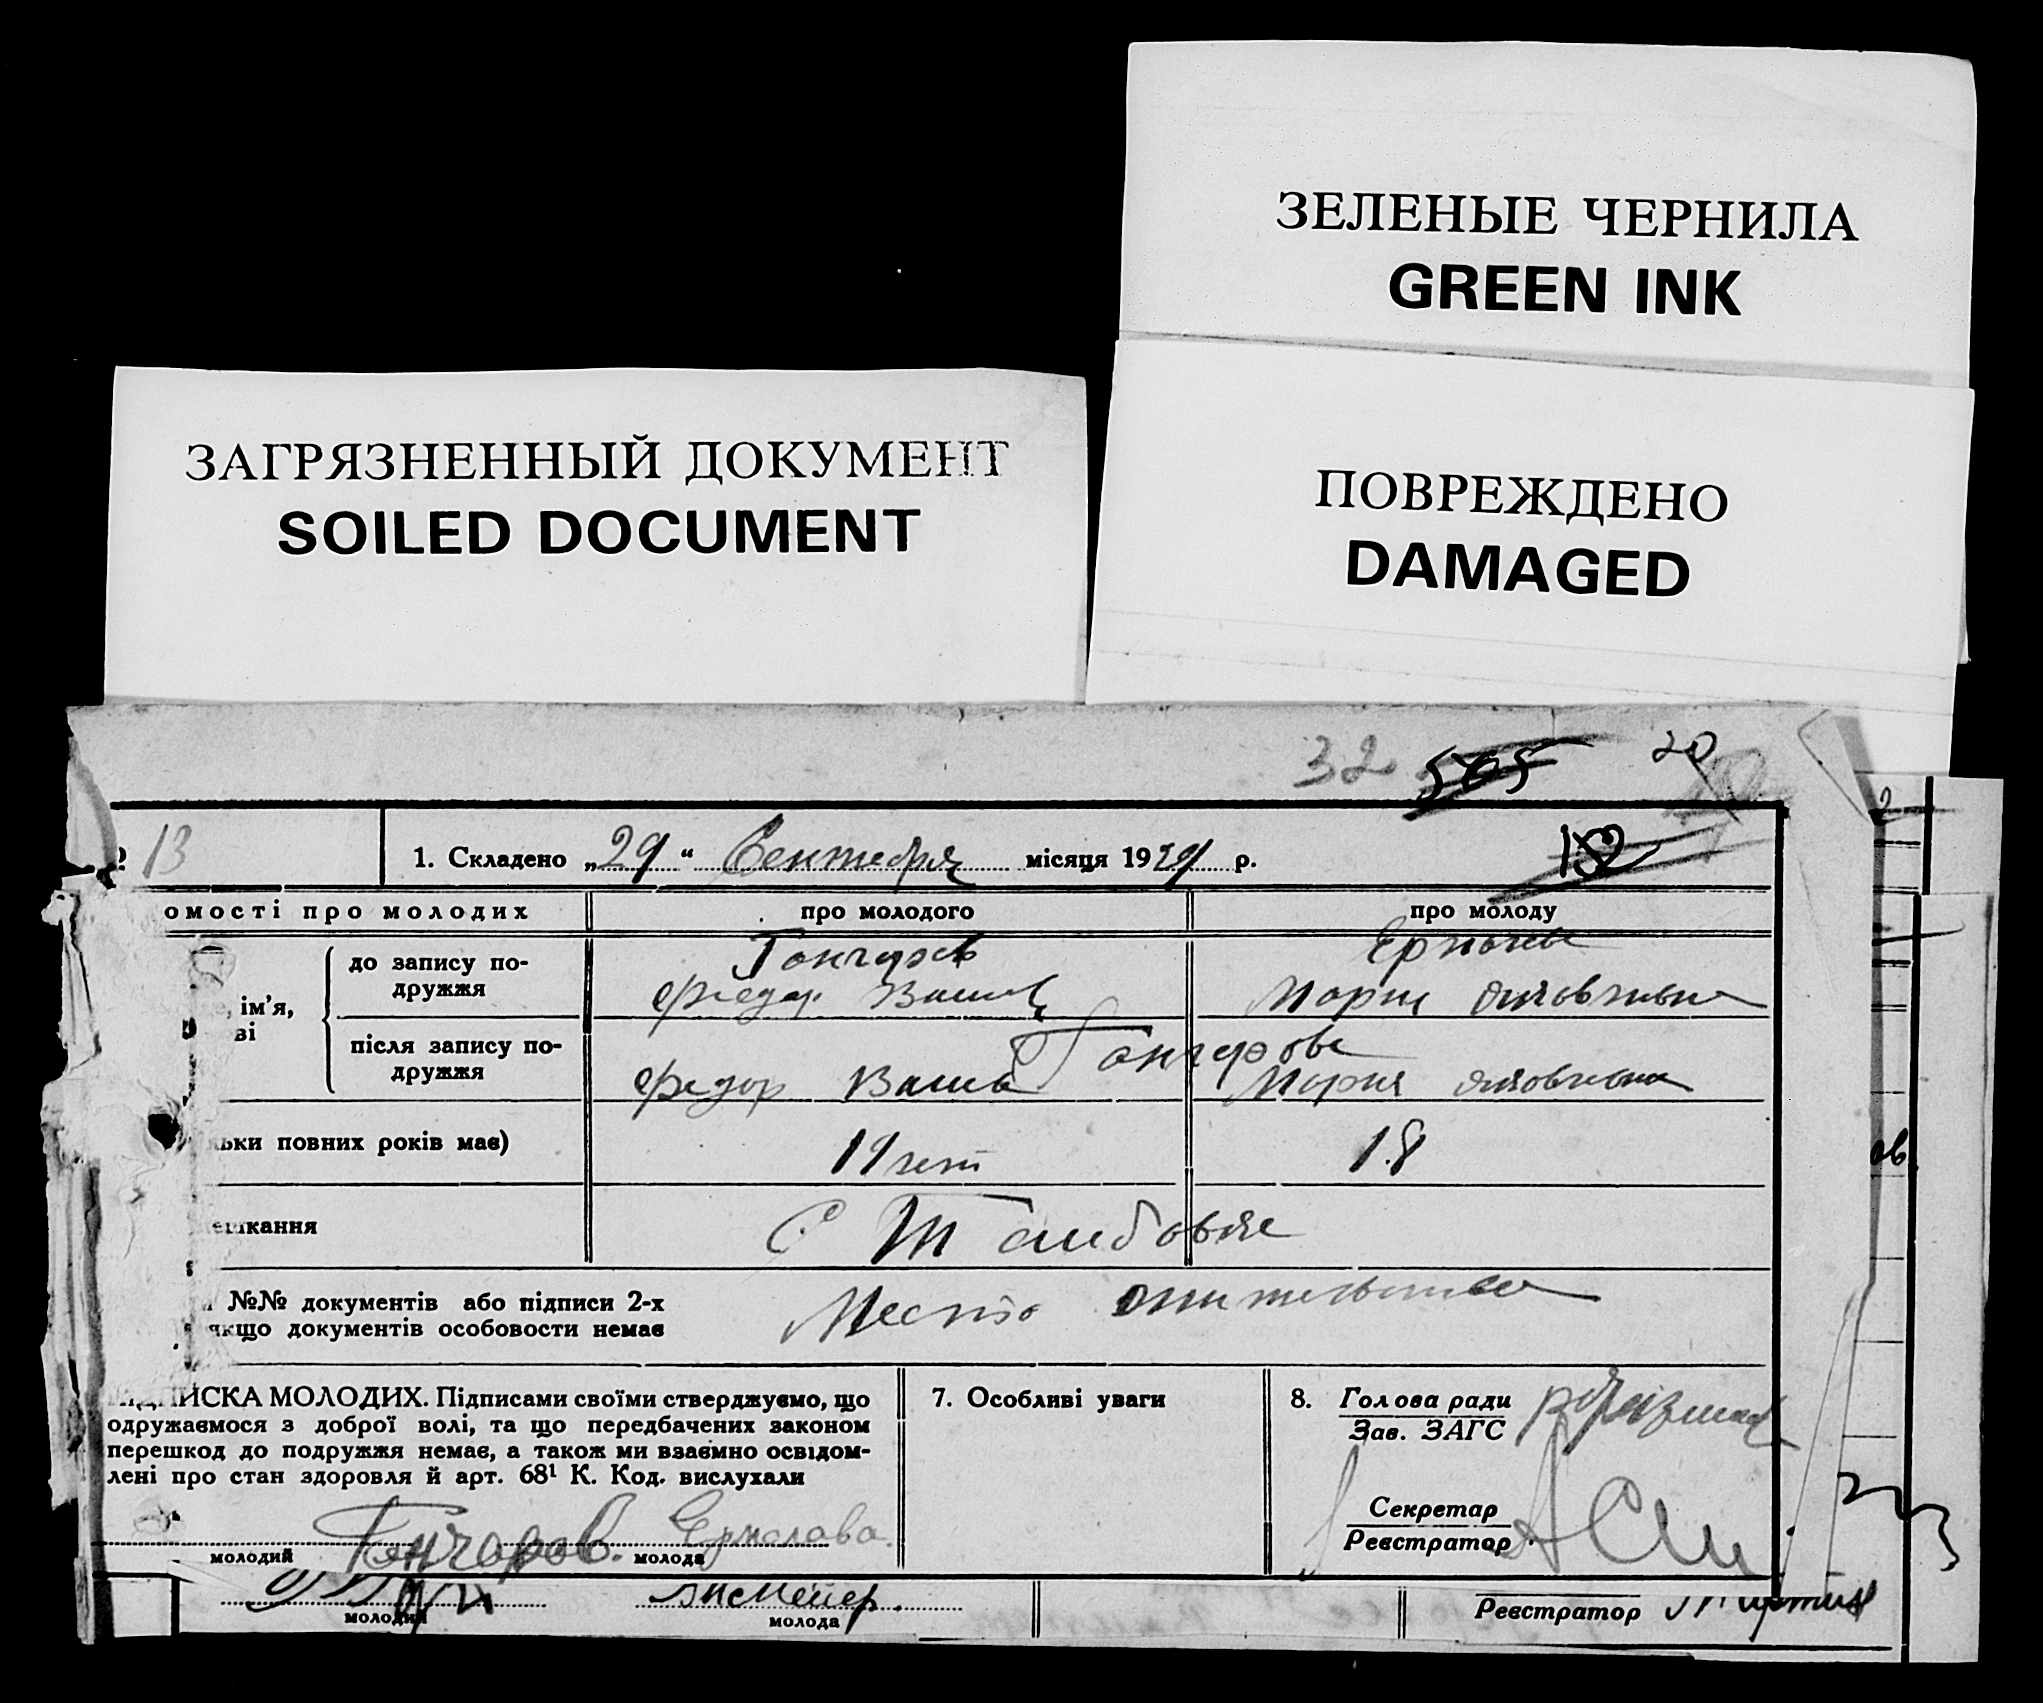 ЗЕЛЕНЫЕ ЧЕРНИЛА
GREEN INK
ЗАГРЯЗНЕННЫЙ ДОКУМЕНТ
SOILED DOCUMENT
ПОВРЕЖДЕНО
DAMAGED
32 565 20
13
1. Складено „29“ Сентября місяця 1929 р.
132
омості про молодих
про молодого
про молоду
до запису по-
дружжя
ім'я,
ві
Гончаров
Федор
Мария Яковлевна
після запису по-
дружжя
Гончарова
Федор
Мария Яковлевна
ьки повних років має)
19 лет
18
ешкання
С
№№ документів або підписи 2-х
якщо документів особовости немає
Место жительства
ПІДПИСКА МОЛОДИХ. Підписами своїми стверджуємо, що
одружаємося з доброї волі, та що передбачених законом
перешкод до подружжя немає, а також ми взаємно освідом-
лені про стан здоровля й арт. 68¹ К. Код. вислухали
молодий Гончаров. молода
7. Особливі уваги
8. Голова ради
Зав. ЗАГС
Секретар
Реєстратор
молодий
молода
Реєстратор